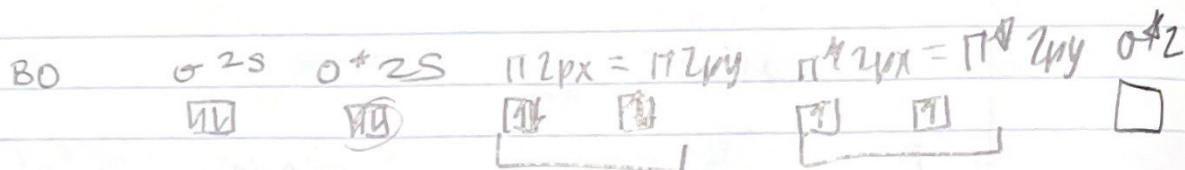 BO σ 2s σ* 2s π 2px = π 2py π* 2px = π* 2py σ*2
↑↓ ↑↓ ↑↓ ↑ ↑